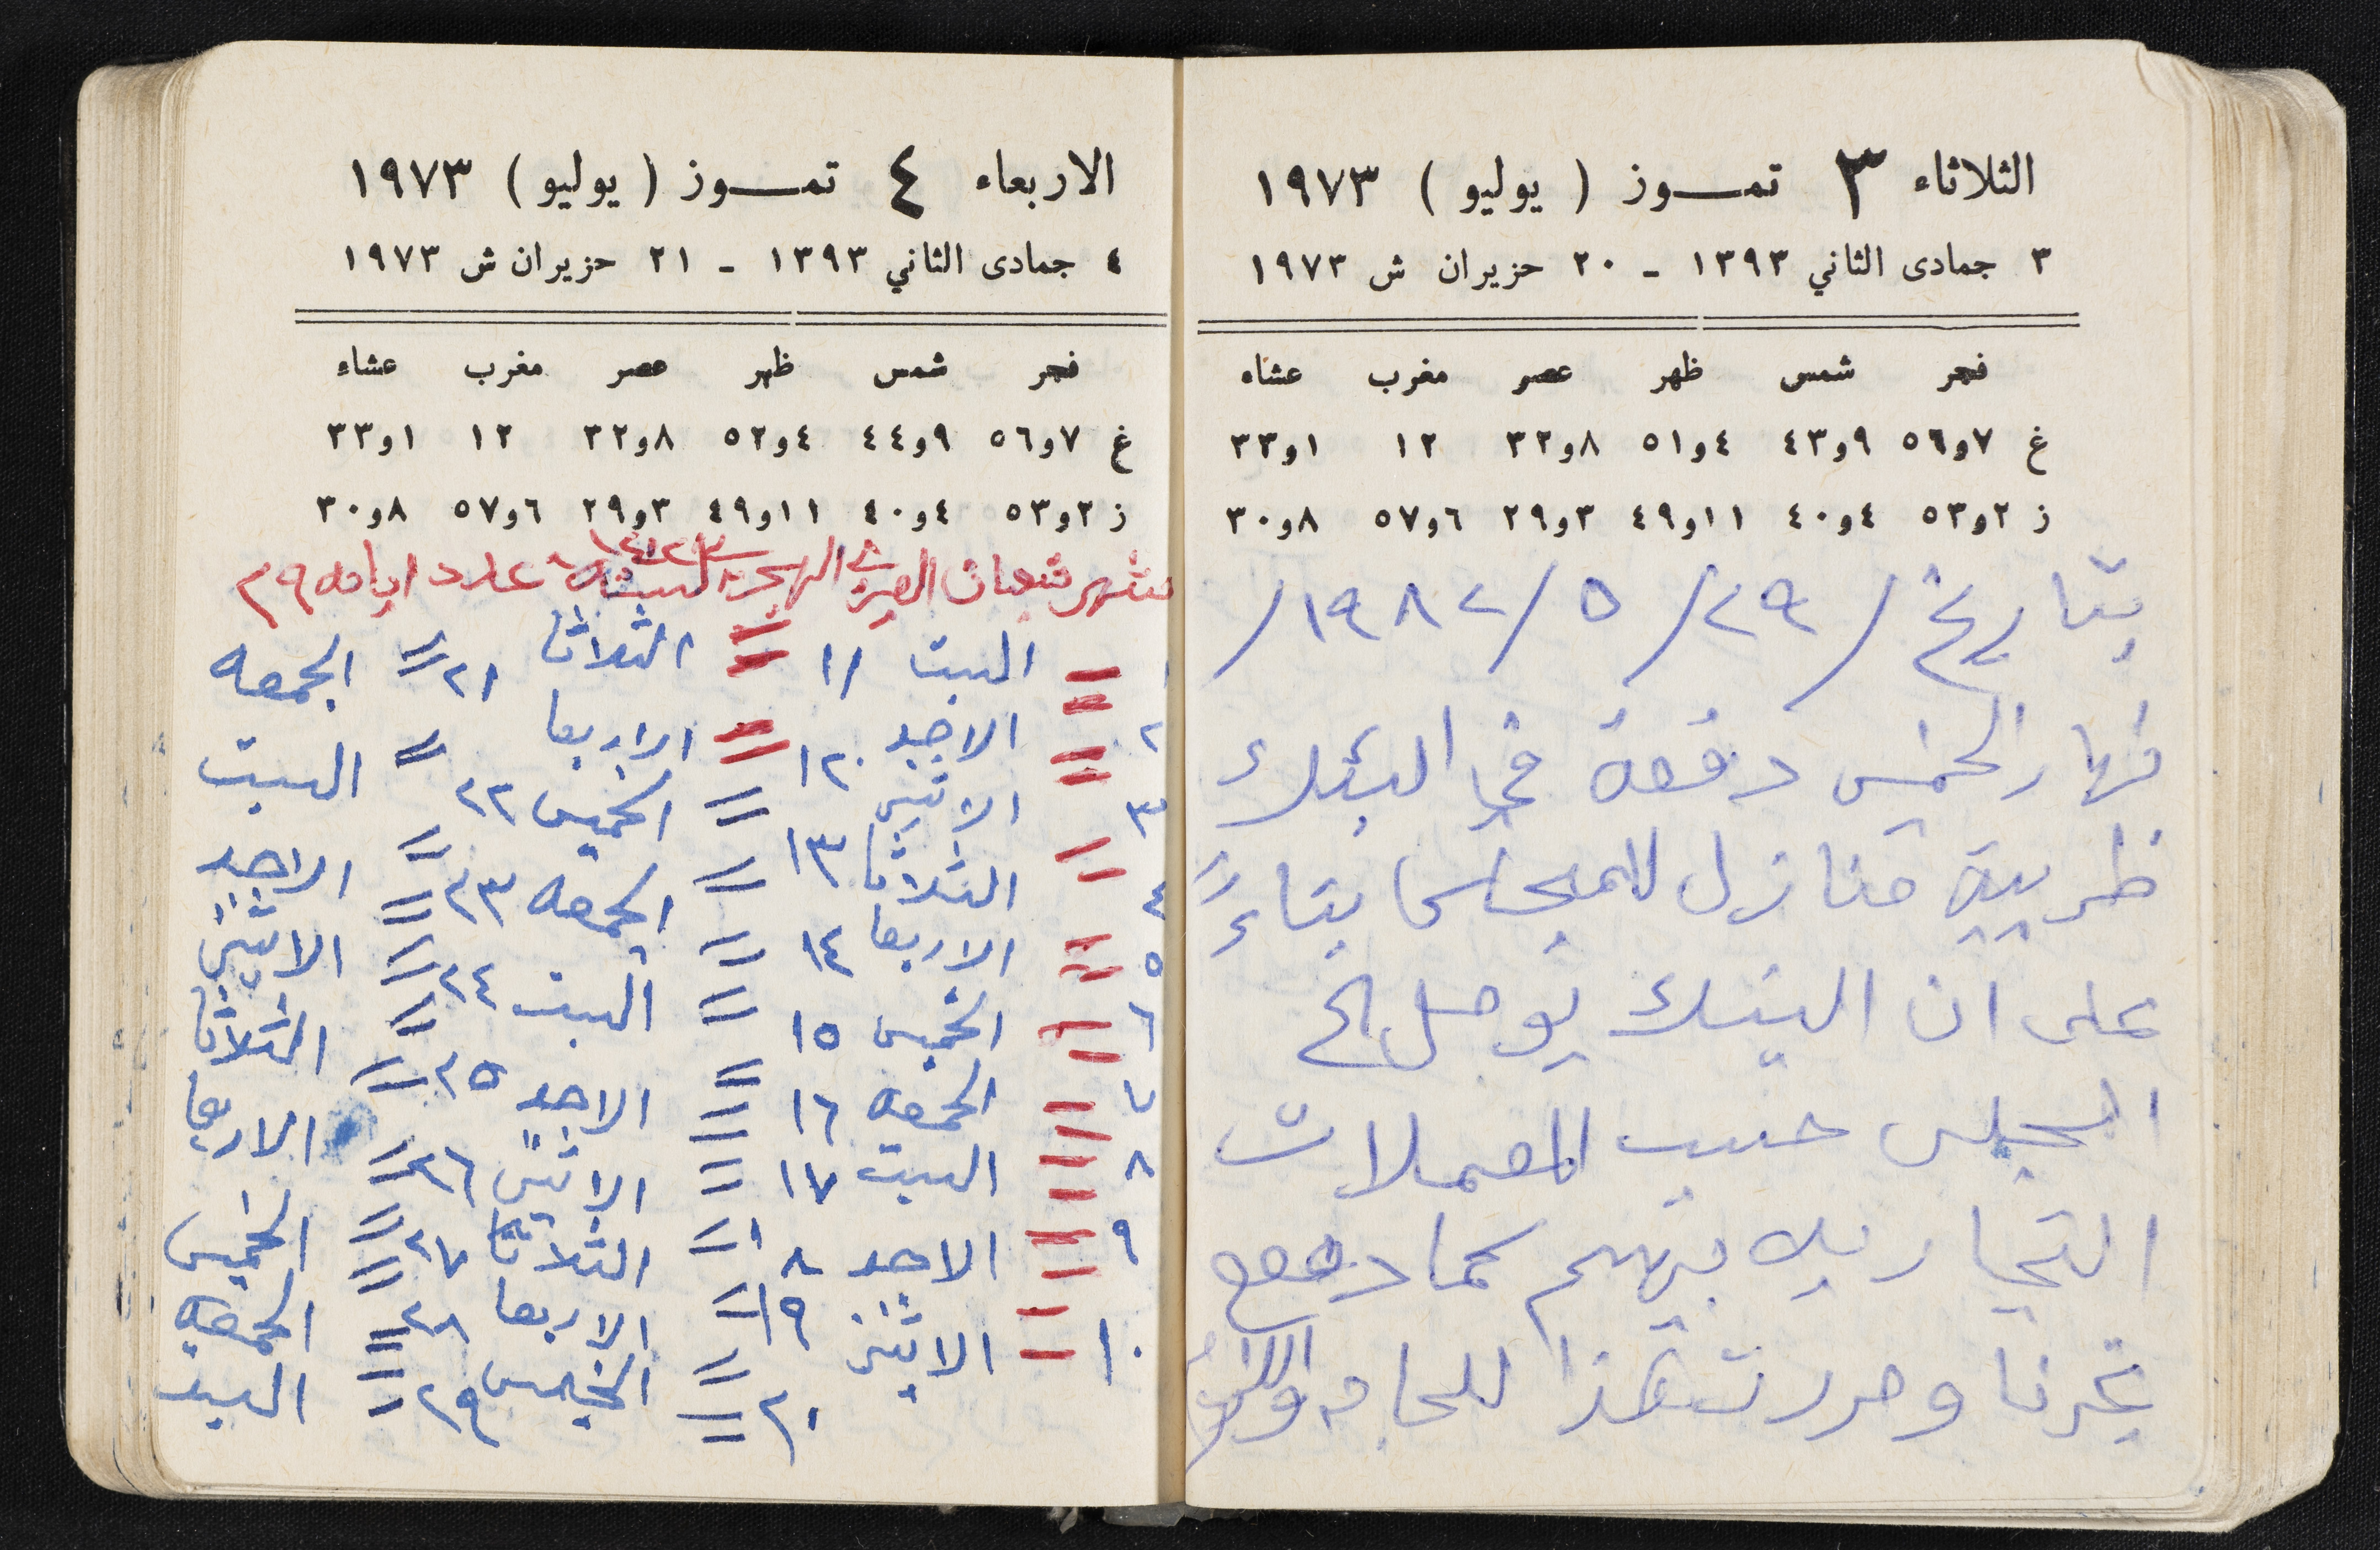 الثلاثاء ٣ تمـــوز ( يوليو ) ١٩٧٣
٣ جمادى الثاني ١٣٩٣ ـ ٢٠ حزيران ش ١٩٧٣
فجر شمس ظهر عصر مغرب عشاء
غ ٧و٥٦ ٩و٤٣ ٤و٥١ ٨و٣٢ ١٢ ١و٣٣
ز ٢و٥٣ ٤و٤٠ ١١و٤٩ ٣و٢٩ ٦و٥٧ ٨و٣٠
بتاريخ / ٢٩/ ٥ /١٩٨٢/
نهار الخمس دفعة في البنك
ظريبة منازل للمجلس بناءً
على ان البنك يوصل الى
المجلس حسب المعملات
التجاريه بينهم كما دفع
غيرنا وحررت هذا للحاجه
الاربعاء ٤ تمـــوز ( يوليو ) ١٩٧٣
٤ جمادى الثاني ١٣٩٣ ـ ٢١ حزيران ش ١٩٧٣
فجر شمس ظهر عصر مغرب عشاء
غ ٧و٥٦ ٩و٤٤ ٤و٥٢ ٨و٣٢ ١٢ ١و٣٣
ز ٢و٥٣ ٤و٤٠ ١١و٤٩ ٣و٢٩ ٦و٥٧ ٨و٣٠
شهر شعبان العربي الهجري لسنة ١٤٢٣ عدد ايامه ٢٩
١ = السبت ١١ = الثلاثا ٢١ = الجمعه
٢ = الاحد ١٢ = الاربعا ٢٢ = السبت
٣ = الاثنين ١٣ = الخميس ٢٣ = الاحد
٤ = الثلاثا ١٤ = الجمعه ٢٤ = الاثنين
٥ = الاربعا ١٥ = السبت ٢٥ = الثلاثا
٦ = الخميس ١٦ = الاحد ٢٦ = الاربعا
٧ = الجمعه ١٧ = الاثنين ٢٧ = الخميس
٨ = السبت ١٨ = الثلاثا ٢٨ = الجمعه
٩ = الاحد ١٩ = الاربعا ٢٩ = السبت
١٠ = الاثنين ٢٠ = الخميس